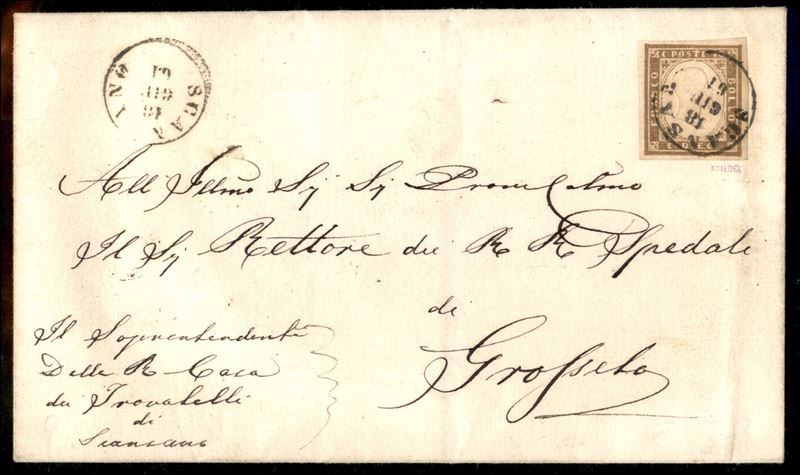 SCANSANO
18
GIU
61
FRANCO
BOLLO
C. POSTE
SCANSANO
18
GIU
61
FRIEDEL
All Illmo Sig Sig Pron Colmo
Il Sig Rettore dei R R Spedali
di
Grosseto
Il Soprintendente
Della R Casa
dei Trovatelli
di
Scansano